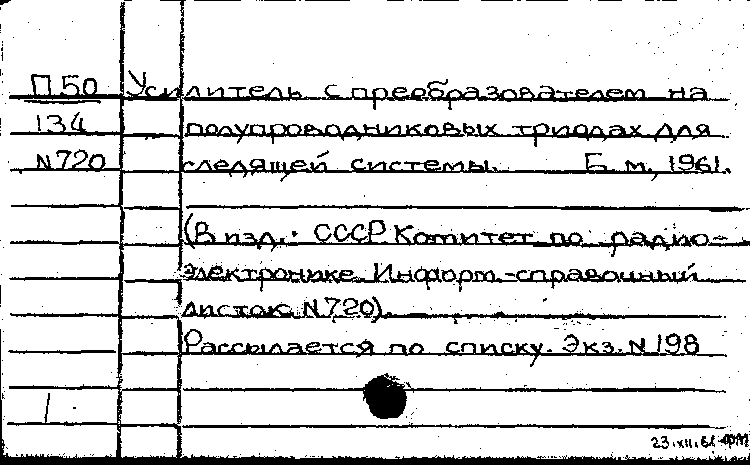 П50 Усилитель с преобразователем на
134 полупроводниковых триодах для
N720 следящей системы. Б.м., 1961.
(В изд.: СССР. Комитет по радио-
электронике. Информ.-справочный
листок N720).
Рассылается по списку. Экз. N198
1
23.XII.61